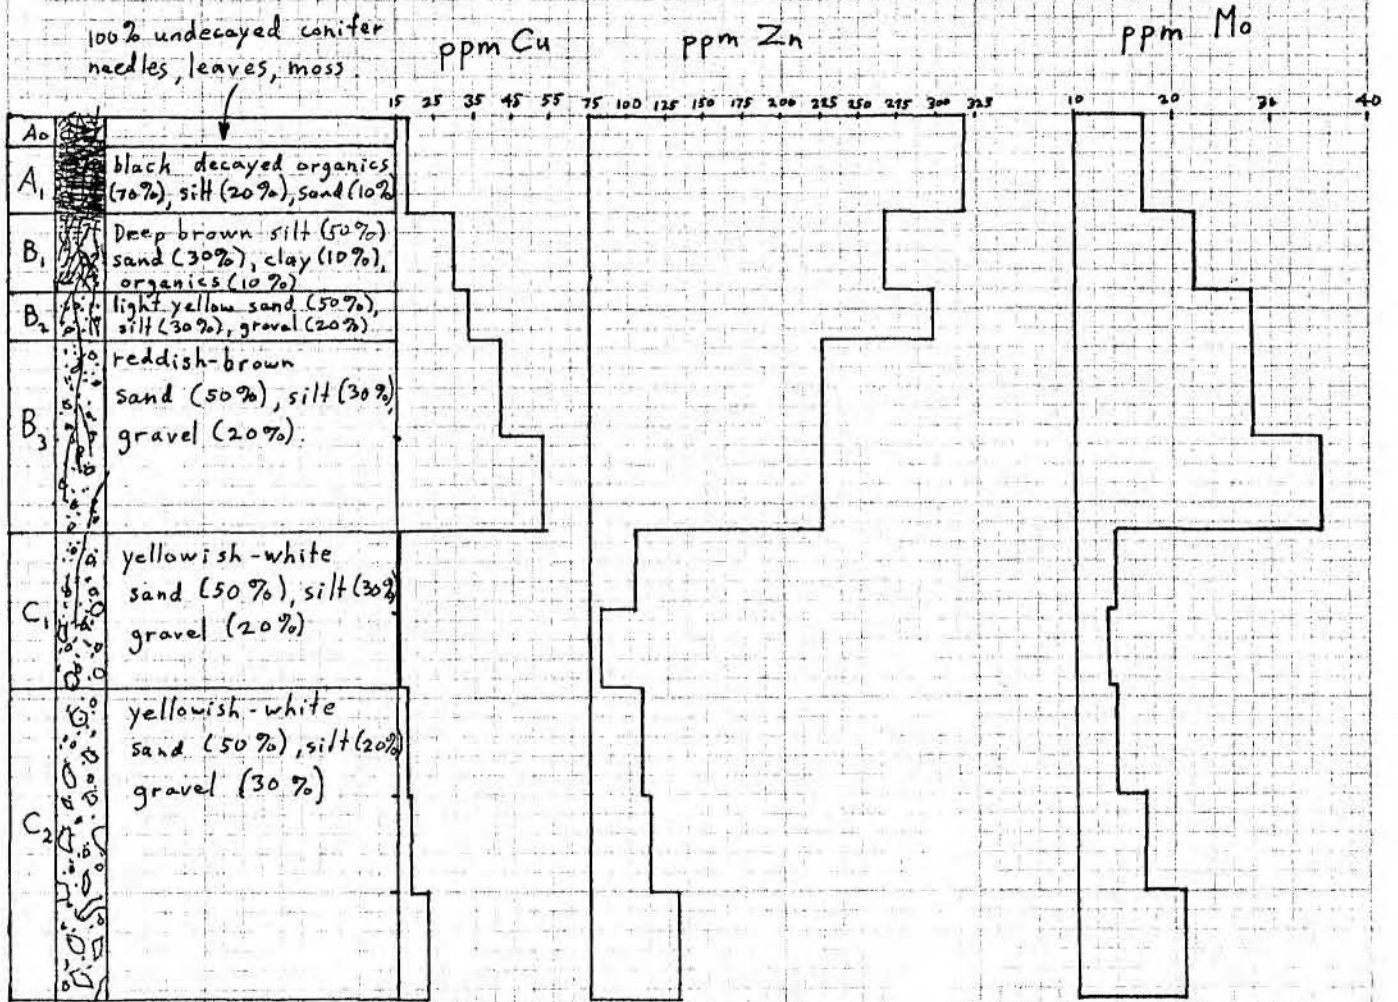 100% undecayed conifer
needles, leaves, moss.
ppm Cu
ppm Zn
ppm Mo
15 25 35 45 55
75 100 125 150 175 200 225 250 275 300 325
10 20 30 40
A0
A1
black decayed organics
(70%), silt (20%), sand (10%
B1
Deep brown silt (50%)
sand (30%), clay (10%),
organics (10%)
B2
light yellow sand (50%),
silt (30%), graval (20%)
B3
reddish-brown
sand (50%), silt (30%),
gravel (20%).
C1
yellowish-white
sand (50%), silt (30%
gravel (20%)
C2
yellowish-white
sand (50%), silt (20%)
gravel (30%)